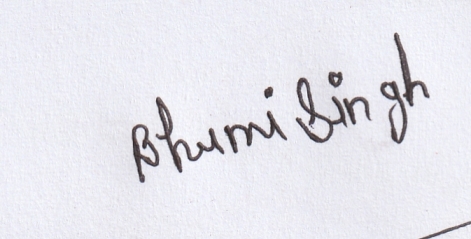 Bhumi Singh